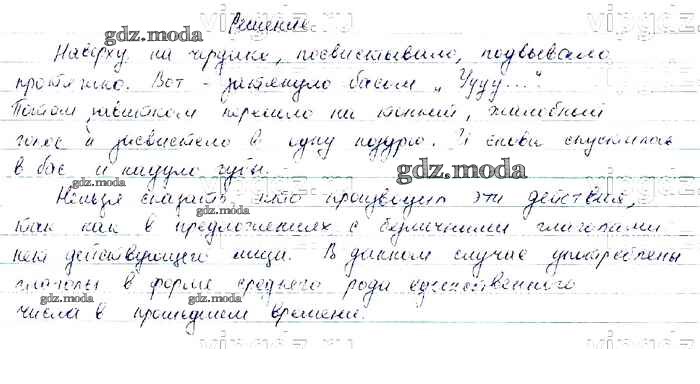 Решение.
Наверху на чердаке, посвистывало, подвывало
протяжно. Вот - затянуло басом „Уууу...“.
Потом завитком перешло на тонкий, жалобный
голос и засвистело в одну ноздрю. И снова спустилась
в бас и надуло губы.
Нельзя сказать, кто производит эти действия,
так как в предложениях с безличными глаголами
нет действующего лица. В данном случае употреблены
глаголы в форме среднего рода единственного
числа в прошедшем времени.
gdz.moda
gdz.moda
gdz.moda
gdz.moda
gdz.moda
gdz.moda
gdz.moda
gdz.moda
gdz.moda